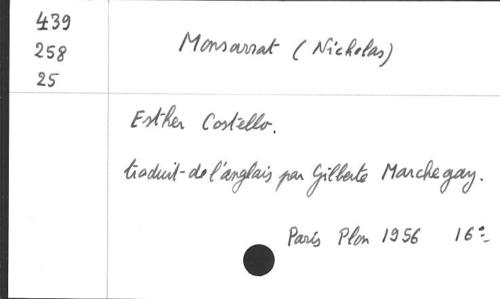 439
258
25
Monsarrat (Nicholas)
Esther Costello.
traduit de l'anglais par Gilberte Marchegay.
Paris Plon 1956 16°